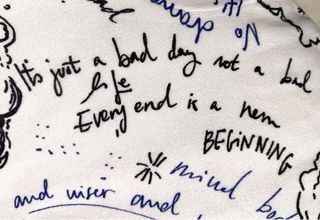 No
It's just a bad day not a bad
life
Every end is a new
BEGINNING
mind
and wiser and